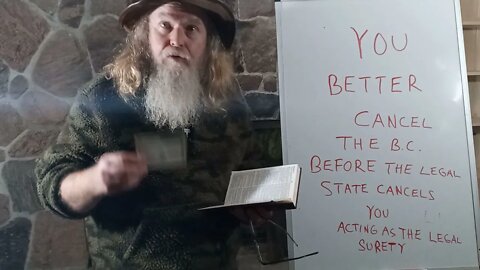 YOU
BETTER
CANCEL
THE B.C.
BEFORE THE LEGAL
STATE CANCELS
YOU
ACTING AS THE LEGAL
SURETY